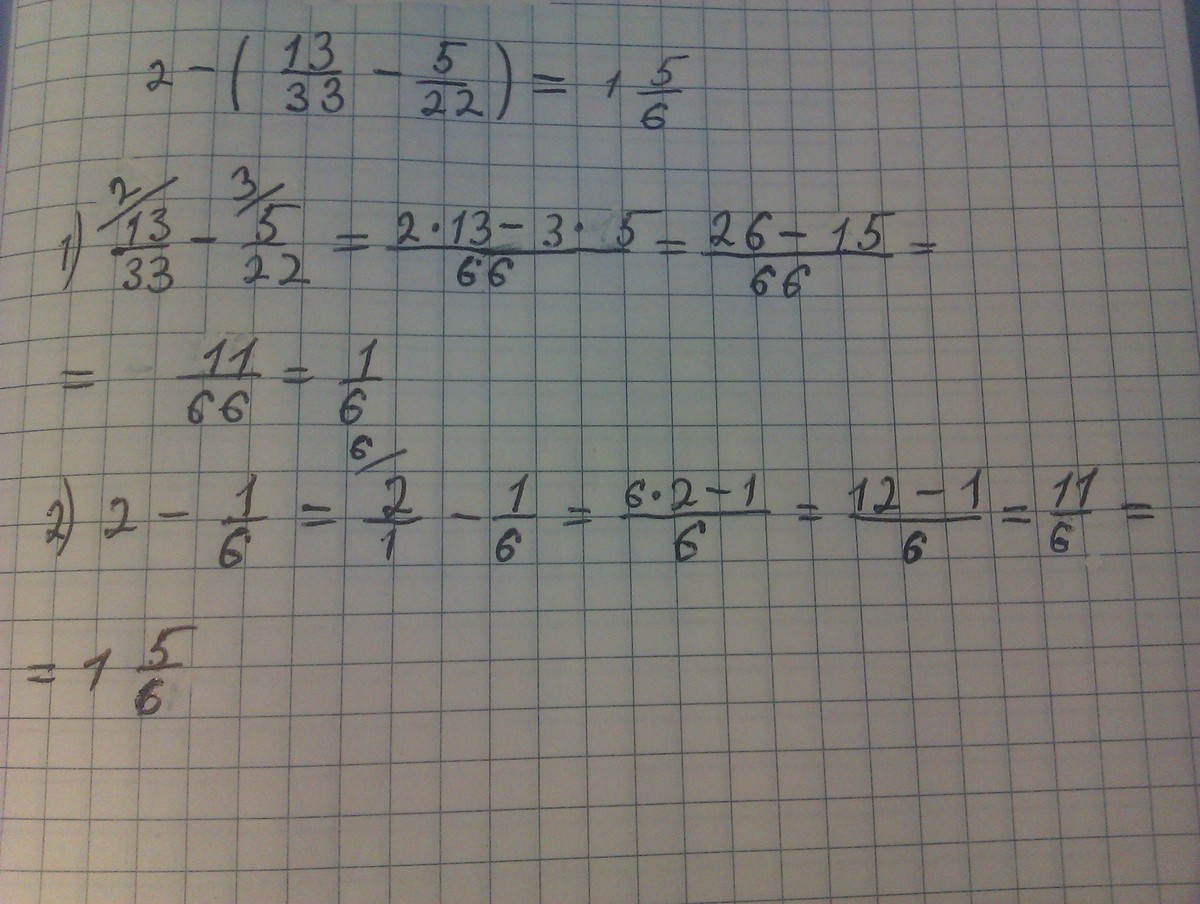 2 - ( 13/33 - 5/22 ) = 1 5/6
1) 2/ 13/33 - 3/ 5/22 = 2·13 - 3·5/66 = 26 - 15/66 =
= 11/66 = 1/6
2) 2 - 1/6 = 6/ 2/1 - 1/6 = 6·2 - 1/6 = 12 - 1/6 = 11/6 =
= 1 5/6